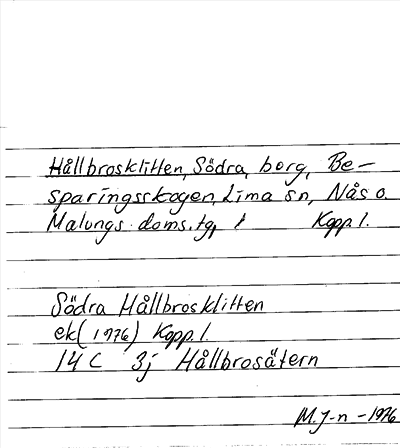 Hållbrosklitten, Södra, berg, Be-
sparingsskogen, Lima sn, Nås o.
Malungs doms.tg, Kopp. l.
Södra Hållbrosklitten
ek (1976) Kopp. l.
14 C 3j Hållbrosätern
M.J-n -1976